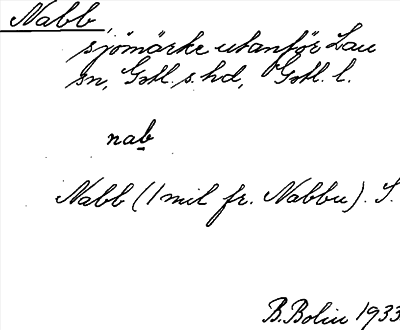 Nabb,
sjömärke utanför Lau
sn, Gotl. s. hd, Gotl. l.
nab
Nabb (1 mil fr. Nabbu). S.
B. Bolin 1933